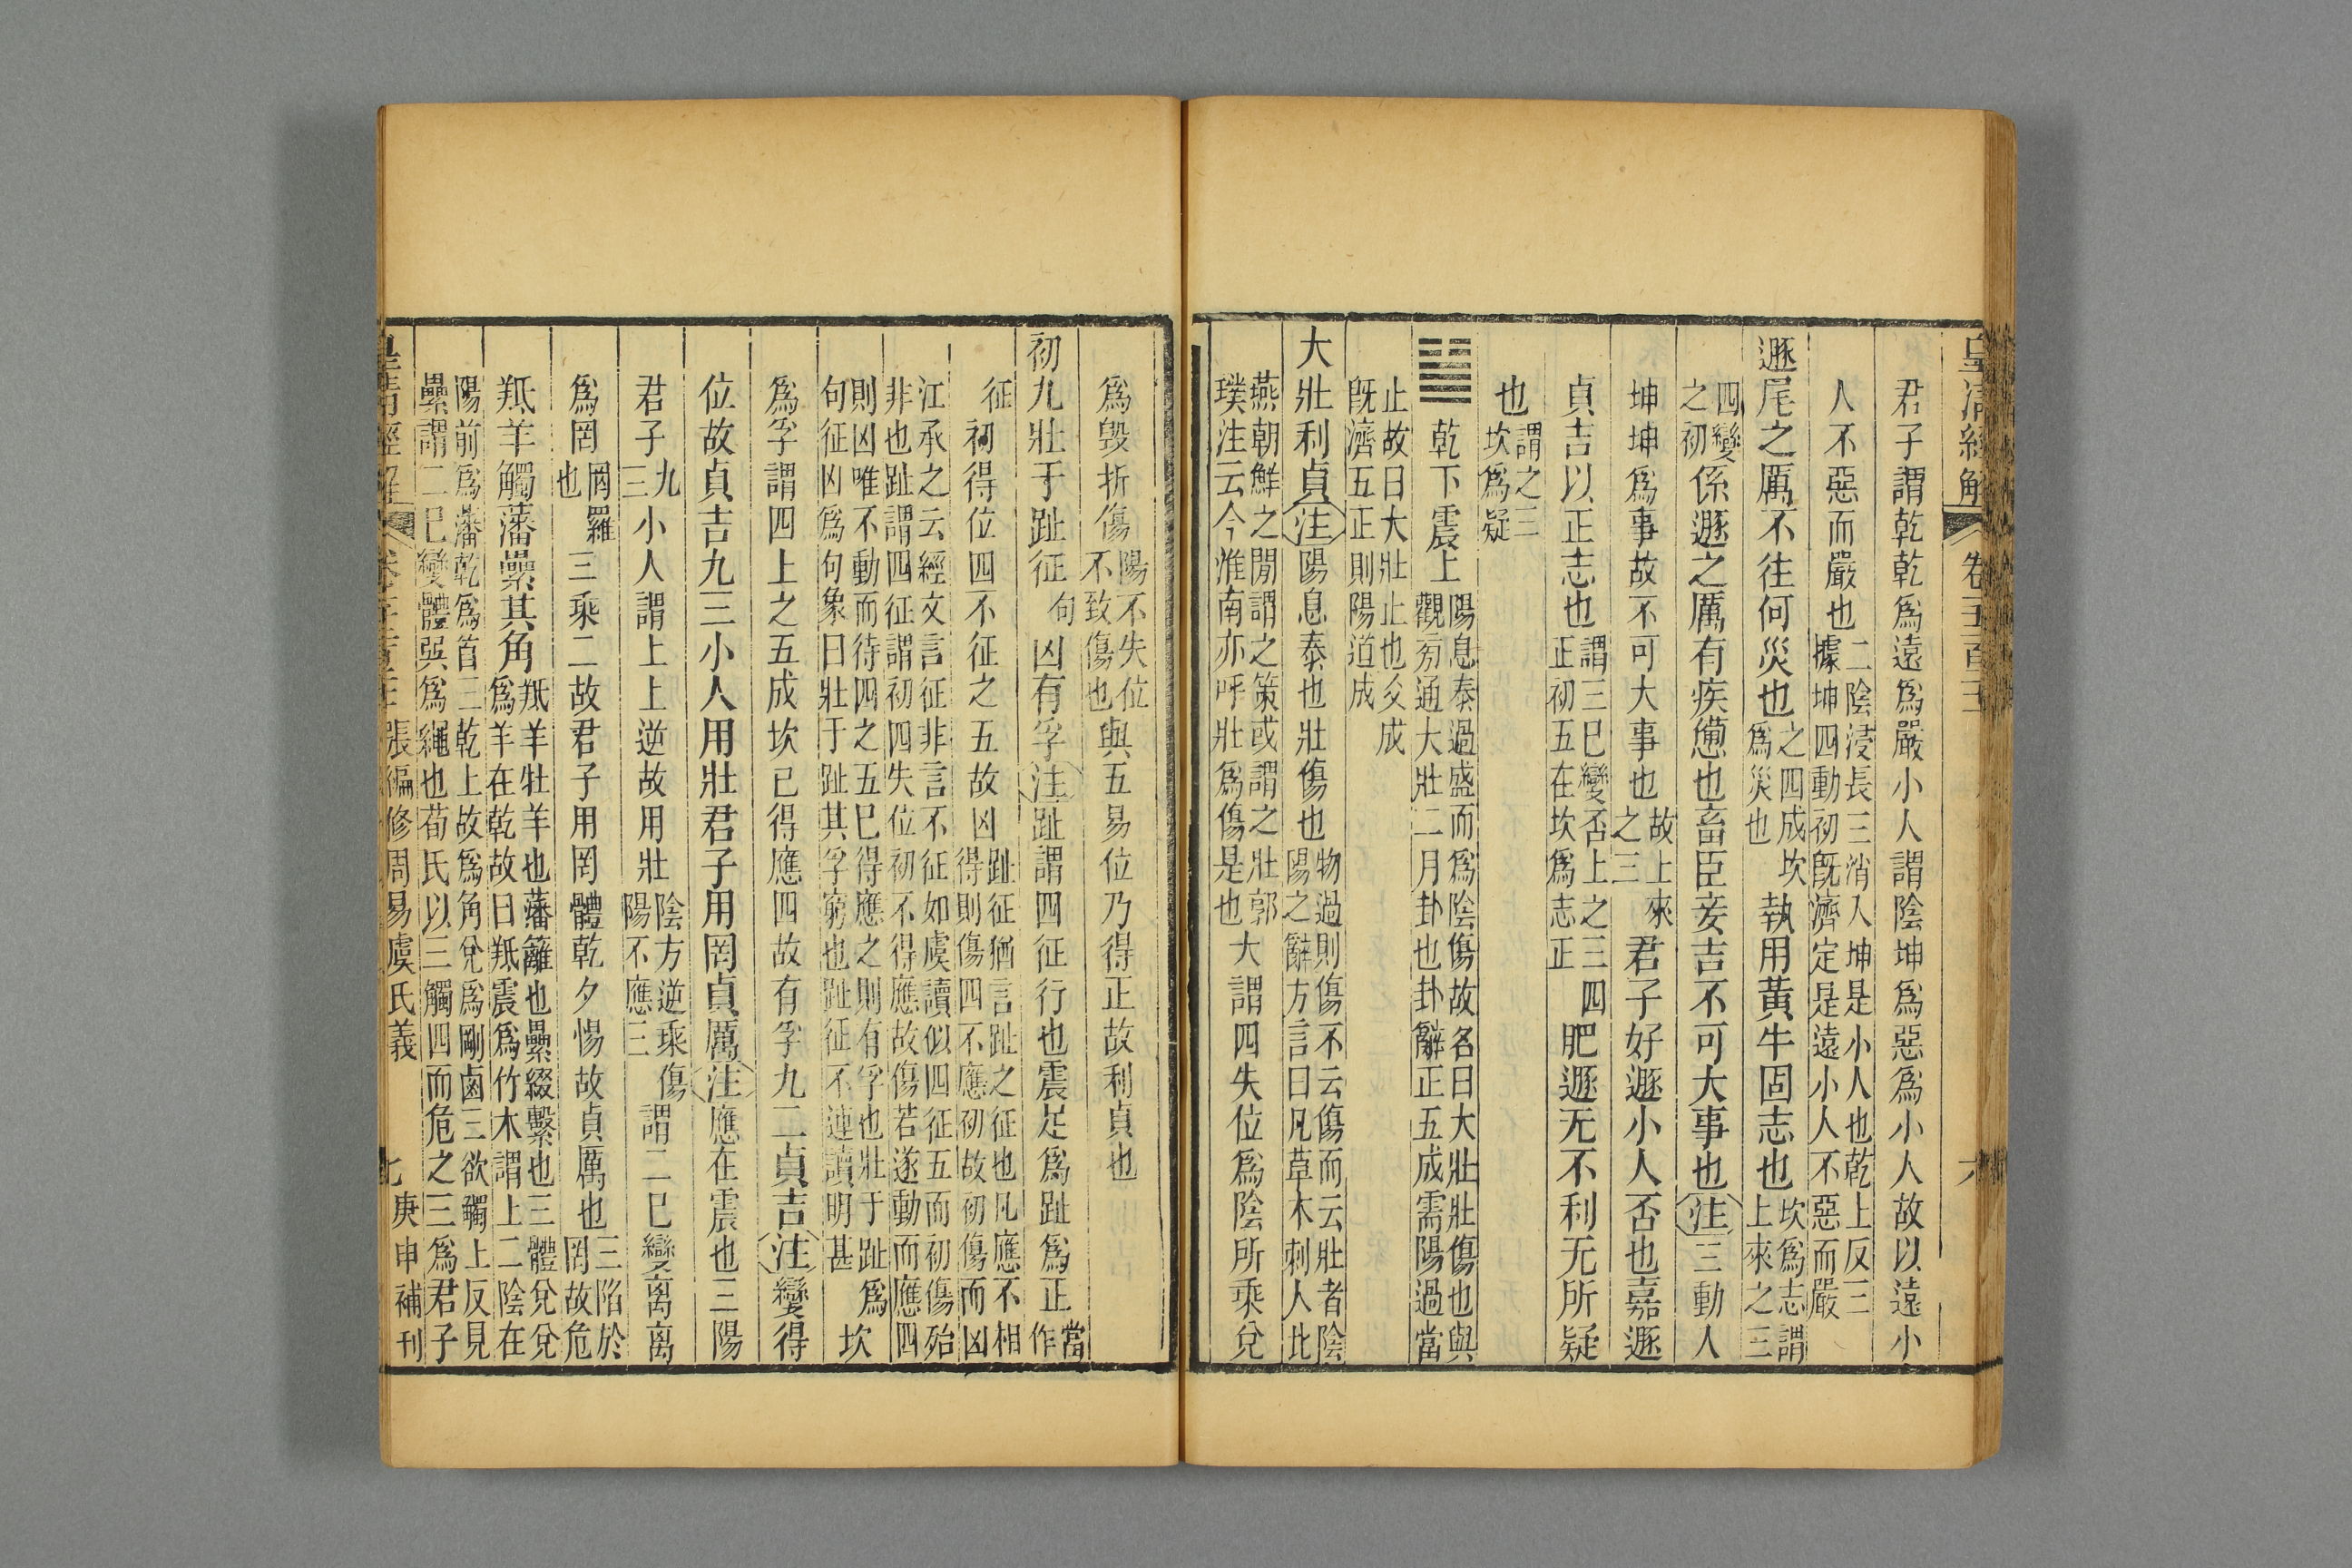 皇清經解 卷千二百二十 六
君子謂乾乾爲遠爲嚴小人謂陰坤爲惡爲小人故以遠小
人不惡而嚴也二陰浸長三消入坤是小人也乾上反三據坤四動初旣濟定是遠小人不惡而嚴
遯尾之厲不往何災也之四成坎爲災也執用黃牛固志也坎爲志謂上來之三
四變之初係遯之厲有疾憊也畜臣妾吉不可大事也注三動人
坤坤爲事故不可大事也故上來之三君子好遯小人否也嘉遯
貞吉以正志也謂三已變否上之三正初五在坎爲志正四肥遯无不利无所疑
也謂之三坎爲疑
䷡乾下震上陽息泰過盛而爲陰傷故名曰大壯壯傷也與觀旁通大壯二月卦也卦辭正五成需陽過當
止故曰大壯止也爻成旣濟五正則陽道成
大壯利貞注陽息泰也壯傷也物過則傷不云傷而云壯者陰陽之辭方言曰凡草木刺人北
燕朝鮮之閒謂之策或謂之壯郭璞注云今淮南亦呼壯爲傷是也大謂四失位爲陰所乘兌
爲毀折傷陽不失位不致傷也與五易位乃得正故利貞也
初九壯于趾征句凶有孚注趾謂四征行也震足爲趾爲正當作
征初得位四不征之五故凶趾征猶言趾之征也凡應不相得則傷四不應初故初傷而凶
江承之云經文言征非言不征如虞讀似四征五而初傷殆非也趾謂四征謂初四失位初不得應故傷若遂動而應四
則凶唯不動而待四之五巳得應之則有孚也壯于趾句征凶爲句象曰壯于趾其孚窮也趾征不連讀明甚爲坎
爲孚謂四上之五成坎已得應四故有孚九二貞吉注變得
位故貞吉九三小人用壯君子用罔貞厲注應在震也三陽
君子九三小人謂上上逆故用壯陰方逆乘陽不應三傷謂二巳變離離
爲罔罔羅也三乘二故君子用罔體乾夕惕故貞厲也三陷於罔故危
羝羊觸藩纍其角羝羊牡羊也藩籬也纍綴繫也三體兌兌爲羊在乾故曰羝震爲竹木謂上二陰在
陽前爲藩乾爲首三乾上故爲角兌爲剛鹵三欲觸上反見纍謂二巳變體巽爲繩也荀氏以三觸四而危之三爲君子
皇清經解 張編修周易虞氏義 七 庚申補刊